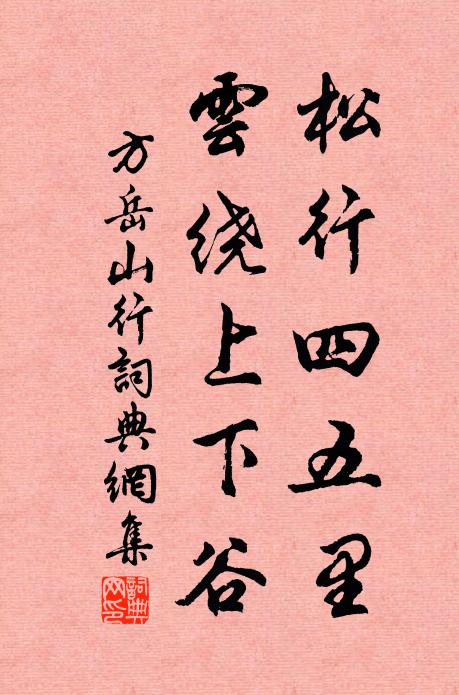 松行四五里
雲绕上下谷
方岳山行詞典網集
詞典網印